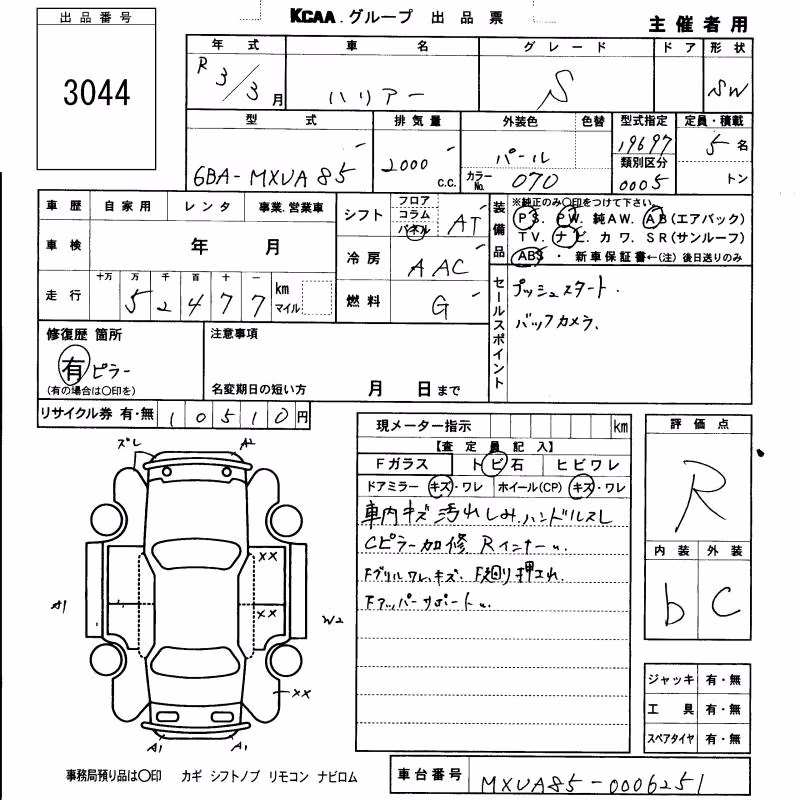 出品番号
3044
KCAA.グループ 出品票
主催者用
年式 車名 グレード ドア 形状
R 3/3月 ハリアー S SW
型式 排気量 外装色 色替 型式指定 定員・積載
6BA-MXUA85 2000 c.c. パール 19697 5名
カラーNo. 070 類別区分 0005 トン
車歴 自家用 レンタ 事業.営業車
車検 年 月
走行 十万 万 千 百 十 一
5 2 4 7 7 km マイル
シフト フロア コラム パネル AT
冷房 AAC
燃料 G
装備品
※純正のみ○印をつけて下さい。
PS. PW. 純AW. AB(エアバック)
TV. ナビ. カワ. SR(サンルーフ)
ABS ・ 新車保証書←(注) 後日送りのみ
セールスポイント
プッシュスタート.
バックカメラ.
修復歴 箇所
有 ピラー
(有の場合は○印を)
注意事項
名変期日の短い方 月 日まで
リサイクル券 有・無 10510円
現メーター指示 km
【査定員記入】
Fガラス トビ石 ヒビワレ
ドアミラー キズ・ワレ ホイール(CP) キズ・ワレ
車内キズ 汚れしみ.ハンドルスレ
Cピラー加修 RインナーU.
Fグリルワレ.キズ. F廻り押エれ.
FアッパーサポートU.
評価点
R
内装 外装
b C
ジャッキ 有・無
工具 有・無
スペアタイヤ 有・無
ズレ A2
XX
XX
A1 W2
XX
A1 A1
事務局預り品は○印 カギ シフトノブ リモコン ナビロム
車台番号 MXUA85-0006251